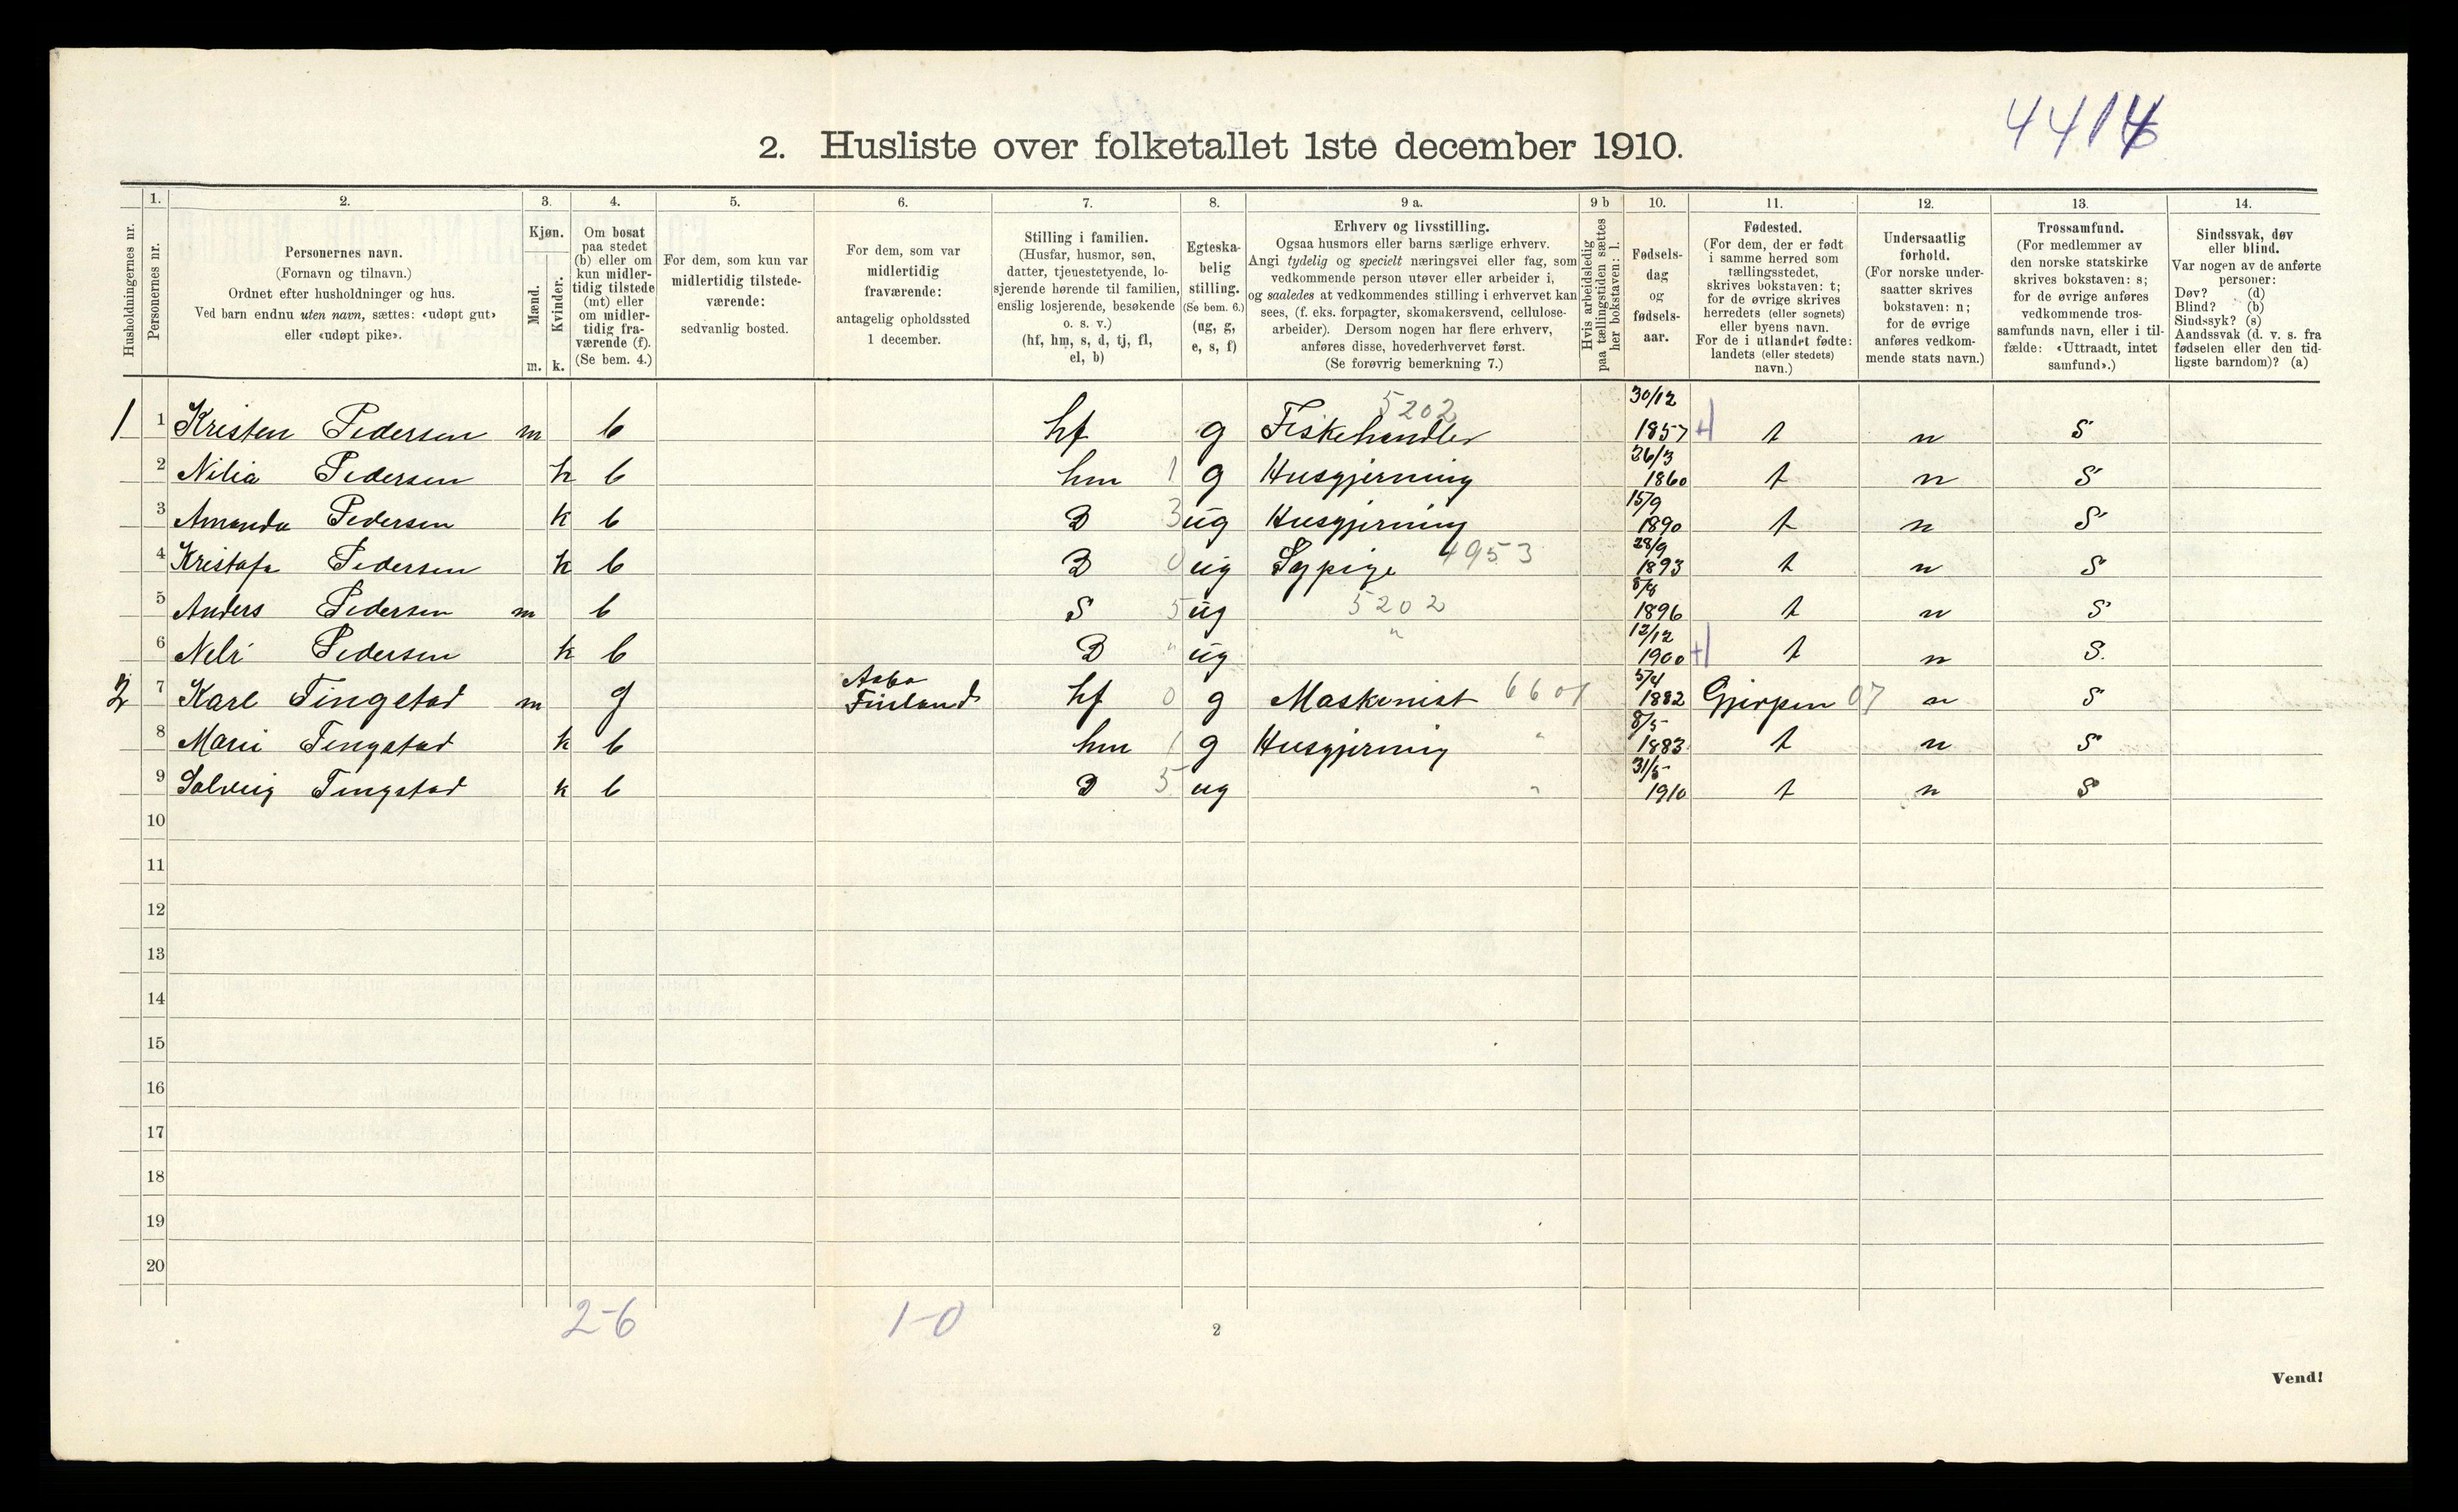 4414
2. Husliste over folketallet 1ste december 1910.
Husholdningernes nr.
1.
Personernes nr.
2.
Personernes navn.
(Fornavn og tilnavn.)
Ordnet efter husholdninger og hus.
Ved barn endnu uten navn, sættes: «udøpt gut»
eller «udøpt pike».
3.
Kjøn.
Mænd.
Kvinder.
m. k.
4.
Om bosat
paa stedet
(b) eller om
kun midler-
tidig tilstede
(mt) eller
om midler-
tidig fra-
værende (f).
(Se bem. 4.)
5.
For dem, som kun var
midlertidig tilstede-
værende:
sedvanlig bosted.
6.
For dem, som var
midlertidig
fraværende:
antagelig opholdssted
1 december.
7.
Stilling i familien.
(Husfar, husmor, søn,
datter, tjenestetyende, lo-
sjerende hørende til familien,
enslig losjerende, besøkende
o. s. v.)
(hf, hm, s, d, tj, fl,
el, b)
8.
Egteska-
belig
stilling.
(Se bem. 6.)
(ug, g,
e, s, f)
9 a.
Erhverv og livsstilling.
Ogsaa husmors eller barns særlige erhverv.
Angi tydelig og specielt næringsvei eller fag, som
vedkommende person utøver eller arbeider i,
og saaledes at vedkommendes stilling i erhvervet kan
sees, (f. eks. forpagter, skomakersvend, cellulose-
arbeider). Dersom nogen har flere erhverv,
anføres disse, hovederhvervet først.
(Se forøvrig bemerkning 7.)
9 b
Hvis arbeidsledig
paa tællingstiden sættes
her bokstaven: l.
10.
Fødsels-
dag
og
fødsels-
aar.
11.
Fødested.
(For dem, der er født
i samme herred som
tællingsstedet,
skrives bokstaven: t;
for de øvrige skrives
herredets (eller sognets)
eller byens navn.
For de i utlandet fødte:
landets (eller stedets)
navn.)
12.
Undersaatlig
forhold.
(For norske under-
saatter skrives
bokstaven: n;
for de øvrige
anføres vedkom-
mende stats navn.)
13.
Trossamfund.
(For medlemmer av
den norske statskirke
skrives bokstaven: s;
for de øvrige anføres
vedkommende tros-
samfunds navn, eller i til-
fælde: «Uttraadt, intet
samfund».)
14.
Sindssvak, døv
eller blind.
Var nogen av de anførte
personer:
Døv? (d)
Blind? (b)
Sindssyk? (s)
Aandssvak (d. v. s. fra
fødselen eller den tid-
ligste barndom)? (a)
1 1 Kristen Pedersen m b hf g Fiskehandler 5202 30/12 1857 t n S
2 Nilia Pedersen k b hm 1 g Husgjerning 1860 t n S
3 Amanda Pedersen k b D 3 ug Husgjerning 15/9 1890 t n S
4 Pedersen k b D 0 ug Sypige 4953 28/9 1893 t n S
5 Anders Pedersen m b S 5 ug 5202 1896 t n S
6 Pedersen k b D " ug " 12/12 1900 t n S.
2 7 Karl Tingstad m f Aabo Finland hf 0 g Maskinist 6601 5/4 1882 Gjerpen 07 n S
8 Marie Tingstad k b hm 1 g Husgjerning " 8/5 1883 t n S
9 Solveig Tingstad k b D 5 ug " 31/5 1910 t n S
10
11
12
13
14
15
16
17
18
19
20
2-6 1-0
2
Vend!